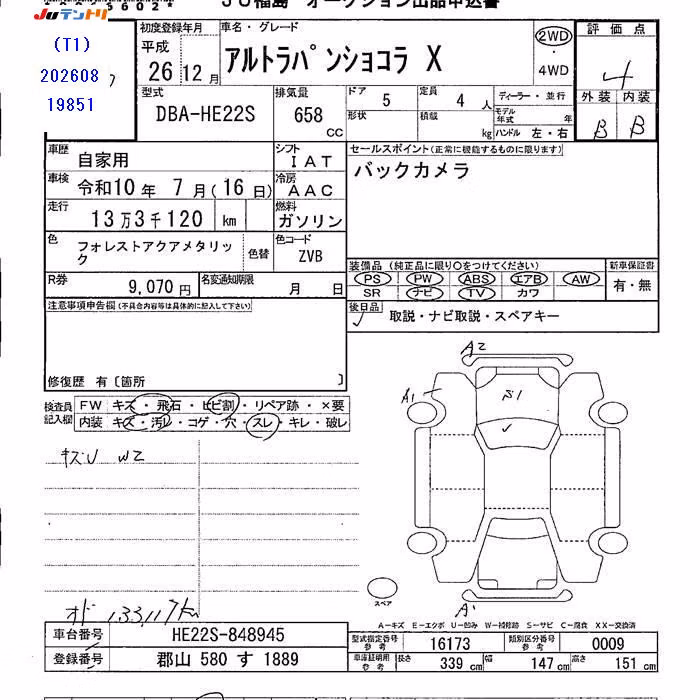 JU福島 オークション出品申込書
JUテントリ
(T1)
202608
19851
初度登録年月
平成
26年12月
車名・グレード
アルトラパンショコラ X
2WD
4WD
評価点
4
外装 内装
B B
型式
DBA-HE22S
排気量
658
CC
ドア
5
形状
定員
4人
積載
kg
ディーラー・並行
モデル年式 年
ハンドル 左・右
車歴
自家用
シフト
IAT
車検
令和10年 7月(16日)
冷房
AAC
走行
13万3千120 km
燃料
ガソリン
色
フォレストアクアメタリック
色替
色コード
ZVB
R券
9,070円
名変通知期限
月 日
セールスポイント(正常に機能するものに限ります)
バックカメラ
装備品(純正品に限り○をつけてください)
PS PW ABS エアB AW
SR ナビ TV カワ
新車保証書
有・無
後日品
取説・ナビ取説・スペアキー
注意事項申告欄(不具合内容等は具体的に記入して下さい)
修復歴 有〔箇所 〕
検査員記入欄
FW キズ・飛石・ヒビ割・リペア跡・×要
内装 キズ・汚レ・コゲ・穴・スレ・キレ・破レ
キズU W2
A2
A1
スペア
A-キズ E-エクボ U-凹み W-補修跡 S-サビ C-腐食 XX-交換済
車台番号
HE22S-848945
登録番号
郡山 580 す 1889
型式指定番号
参考
16173
類別区分番号
参考
0009
車庫証明用
参考
長さ
339 cm
幅
147 cm
高さ
151 cm